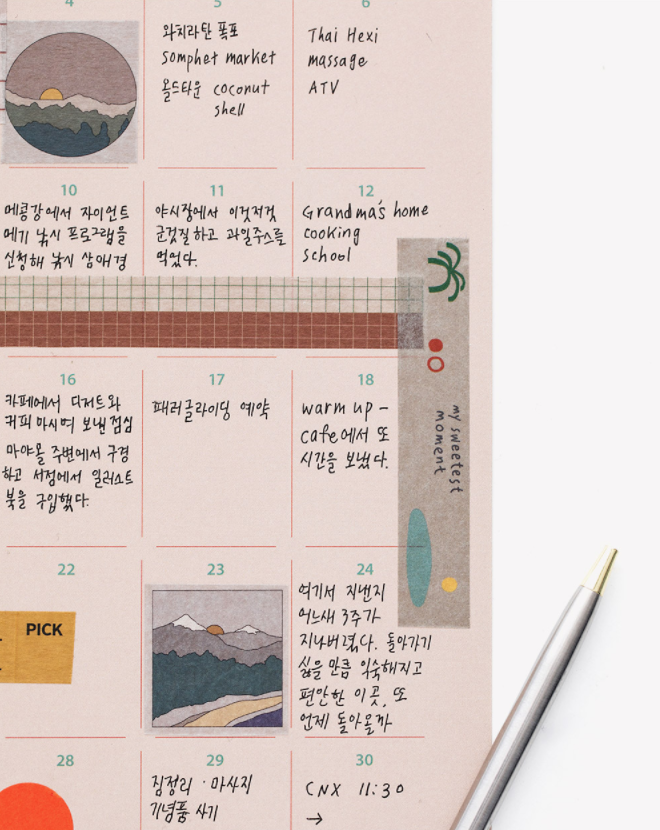 4
5
6
와치라탄 폭포
somphet market
올드타운 coconut
shell
Thai Hexi
massage
ATV
10
11
12
메콩강에서 자이언트
메기 낚시 프로그램을
신청해 낚시 삼매경
야시장에서 이것저것
군것질하고 과일주스를
먹었다.
Grandma's home
cooking
school
16
17
18
카페에서 디저트와
커피 마시며 보낸 점심
마야몰 주변에서 구경
하고 서점에서 일러스트
북을 구입했다.
패러글라이딩 예약
warm up -
cafe에서 또
시간을 보냈다.
my sweetest
moment
22
23
24
PICK
여기서 지낸지
어느새 3주가
지나버렸다. 돌아가기
싫을 만큼 익숙해지고
편안한 이 곳, 또
언제 돌아올까
28
29
30
짐정리 · 마사지
기념품 사기
CNX 11:30
→